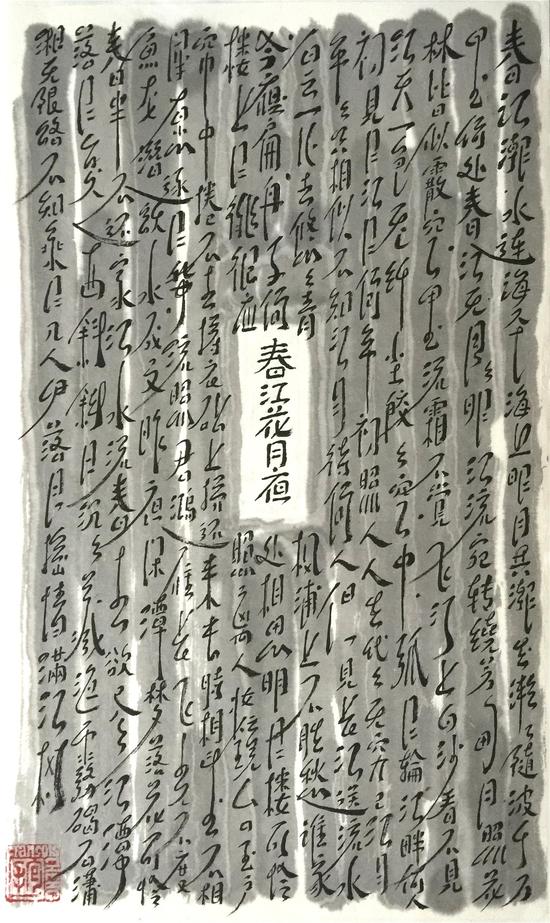 春江潮水連海平海上明月共潮生灩灩隨波千万
里何处春江无月明江流宛转绕芳甸月照花
林皆似霰空里流霜不觉飞汀上白沙看不見
江天一色无纤尘皎々空中孤月輪江畔何人
初見月江月何年初照人人生代代无穷已江月
年々共相似不知江月待何人但見長江送流水
白云一片去悠々青
枫浦上不胜愁谁家
今夜扁舟子何
处相思明月楼可怜
楼上月徘徊应
照离人妆镜台玉户
帘中捲不去擣衣砧上拂还来此時相望不相
闻愿逐月华流照君鸿雁長飞光不度
魚龙潜跃水成文昨夜闲潭梦落花可怜
春半不还家江水流春去欲尽江潭
落月复西斜斜月沉々藏海雾碣石潇
湘无限路不知乘月几人归落月摇情满江树
春江花月夜